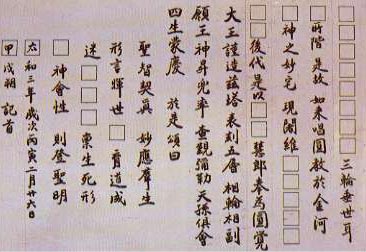 □□□□□□□□□三輪垂世耳
所階 是故 如來唱圓教於金河
□神之妙宅 現闍維□□□
□□後代是以□慧郎奉爲圓覺
大王謹造玆塔 表刻五層 相輪相副
願王神昇兜率 查觀彌勒 天孫俱會
四生蒙慶 於是頌曰
聖智契眞 妙應群生
形言暉世 □育道成
迷□□□ 稟生死形
□神會性 則登聖明
太和三年歲次丙寅二月廿六日
甲戌朔 記首